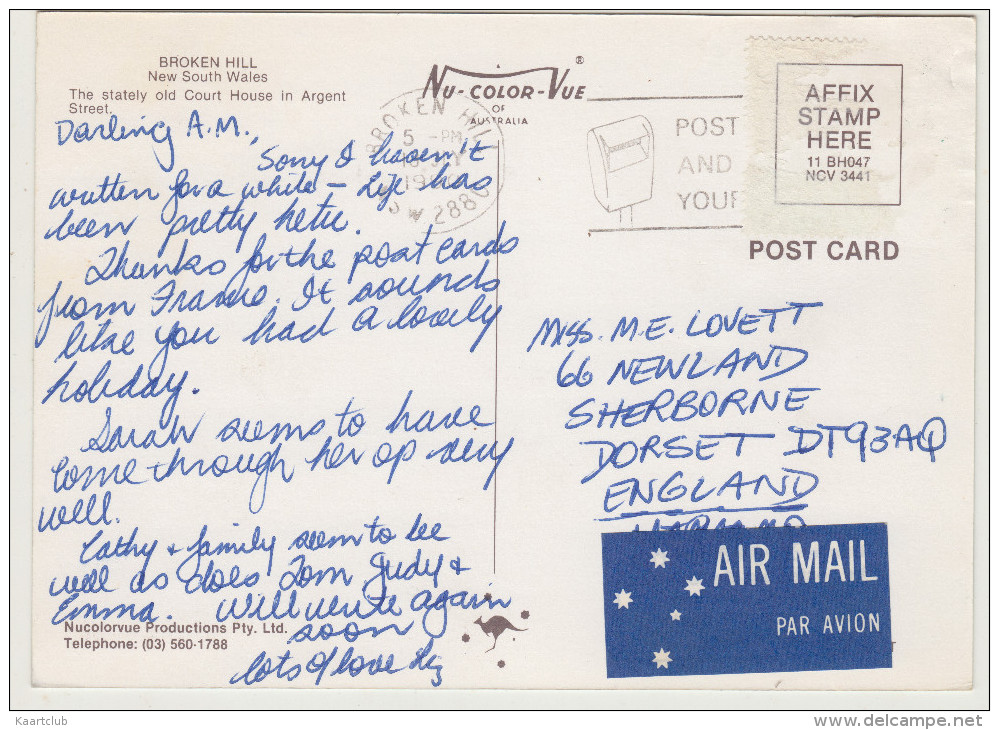 BROKEN HILL
New South Wales
The stately old Court House in Argent
Street.
Darling A.M.,
Sorry I haven't
written for a while – Life has
been pretty hectic.
Thanks for the post cards
from France. It sounds
like you had a lovely
holiday.
Sarah seems to have
come through her op very
well.
Cathy + family seem to be
well as does Tom Judy +
Emma. Will write again
soon
lots of love
Nucolorvue Productions Pty. Ltd.
Telephone: (03) 560-1788
NU-COLOR-VUE®
OF
AUSTRALIA
BROKEN HILL
5 -PM
2880
POST
AND
YOUR
AFFIX
STAMP
HERE
11 BH047
NCV 3441
POST CARD
MISS. M.E. LOVETT
66 NEWLAND
SHERBORNE
DORSET DT93AQ
ENGLAND
AIR MAIL
PAR AVION
Kaartclub
delcampe.net